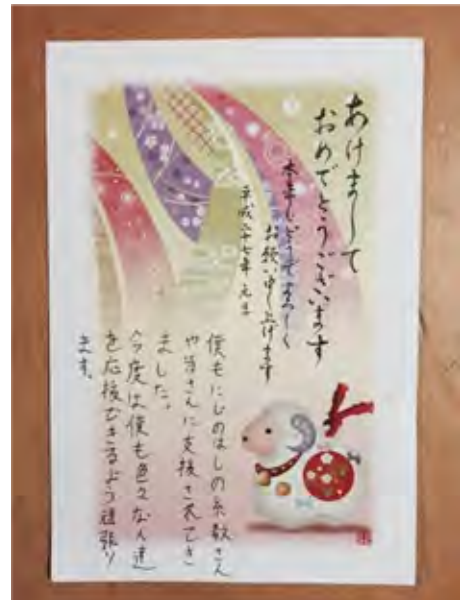 あけまして
おめでとうございます
本年もどうぞよろしく
お願い申し上げます
平成二十七年 元旦
僕もにじのはしの糸数さん
や皆さんに支援されてき
ました。
今度は僕も色々な人達
を応援できるよう頑張り
ます。